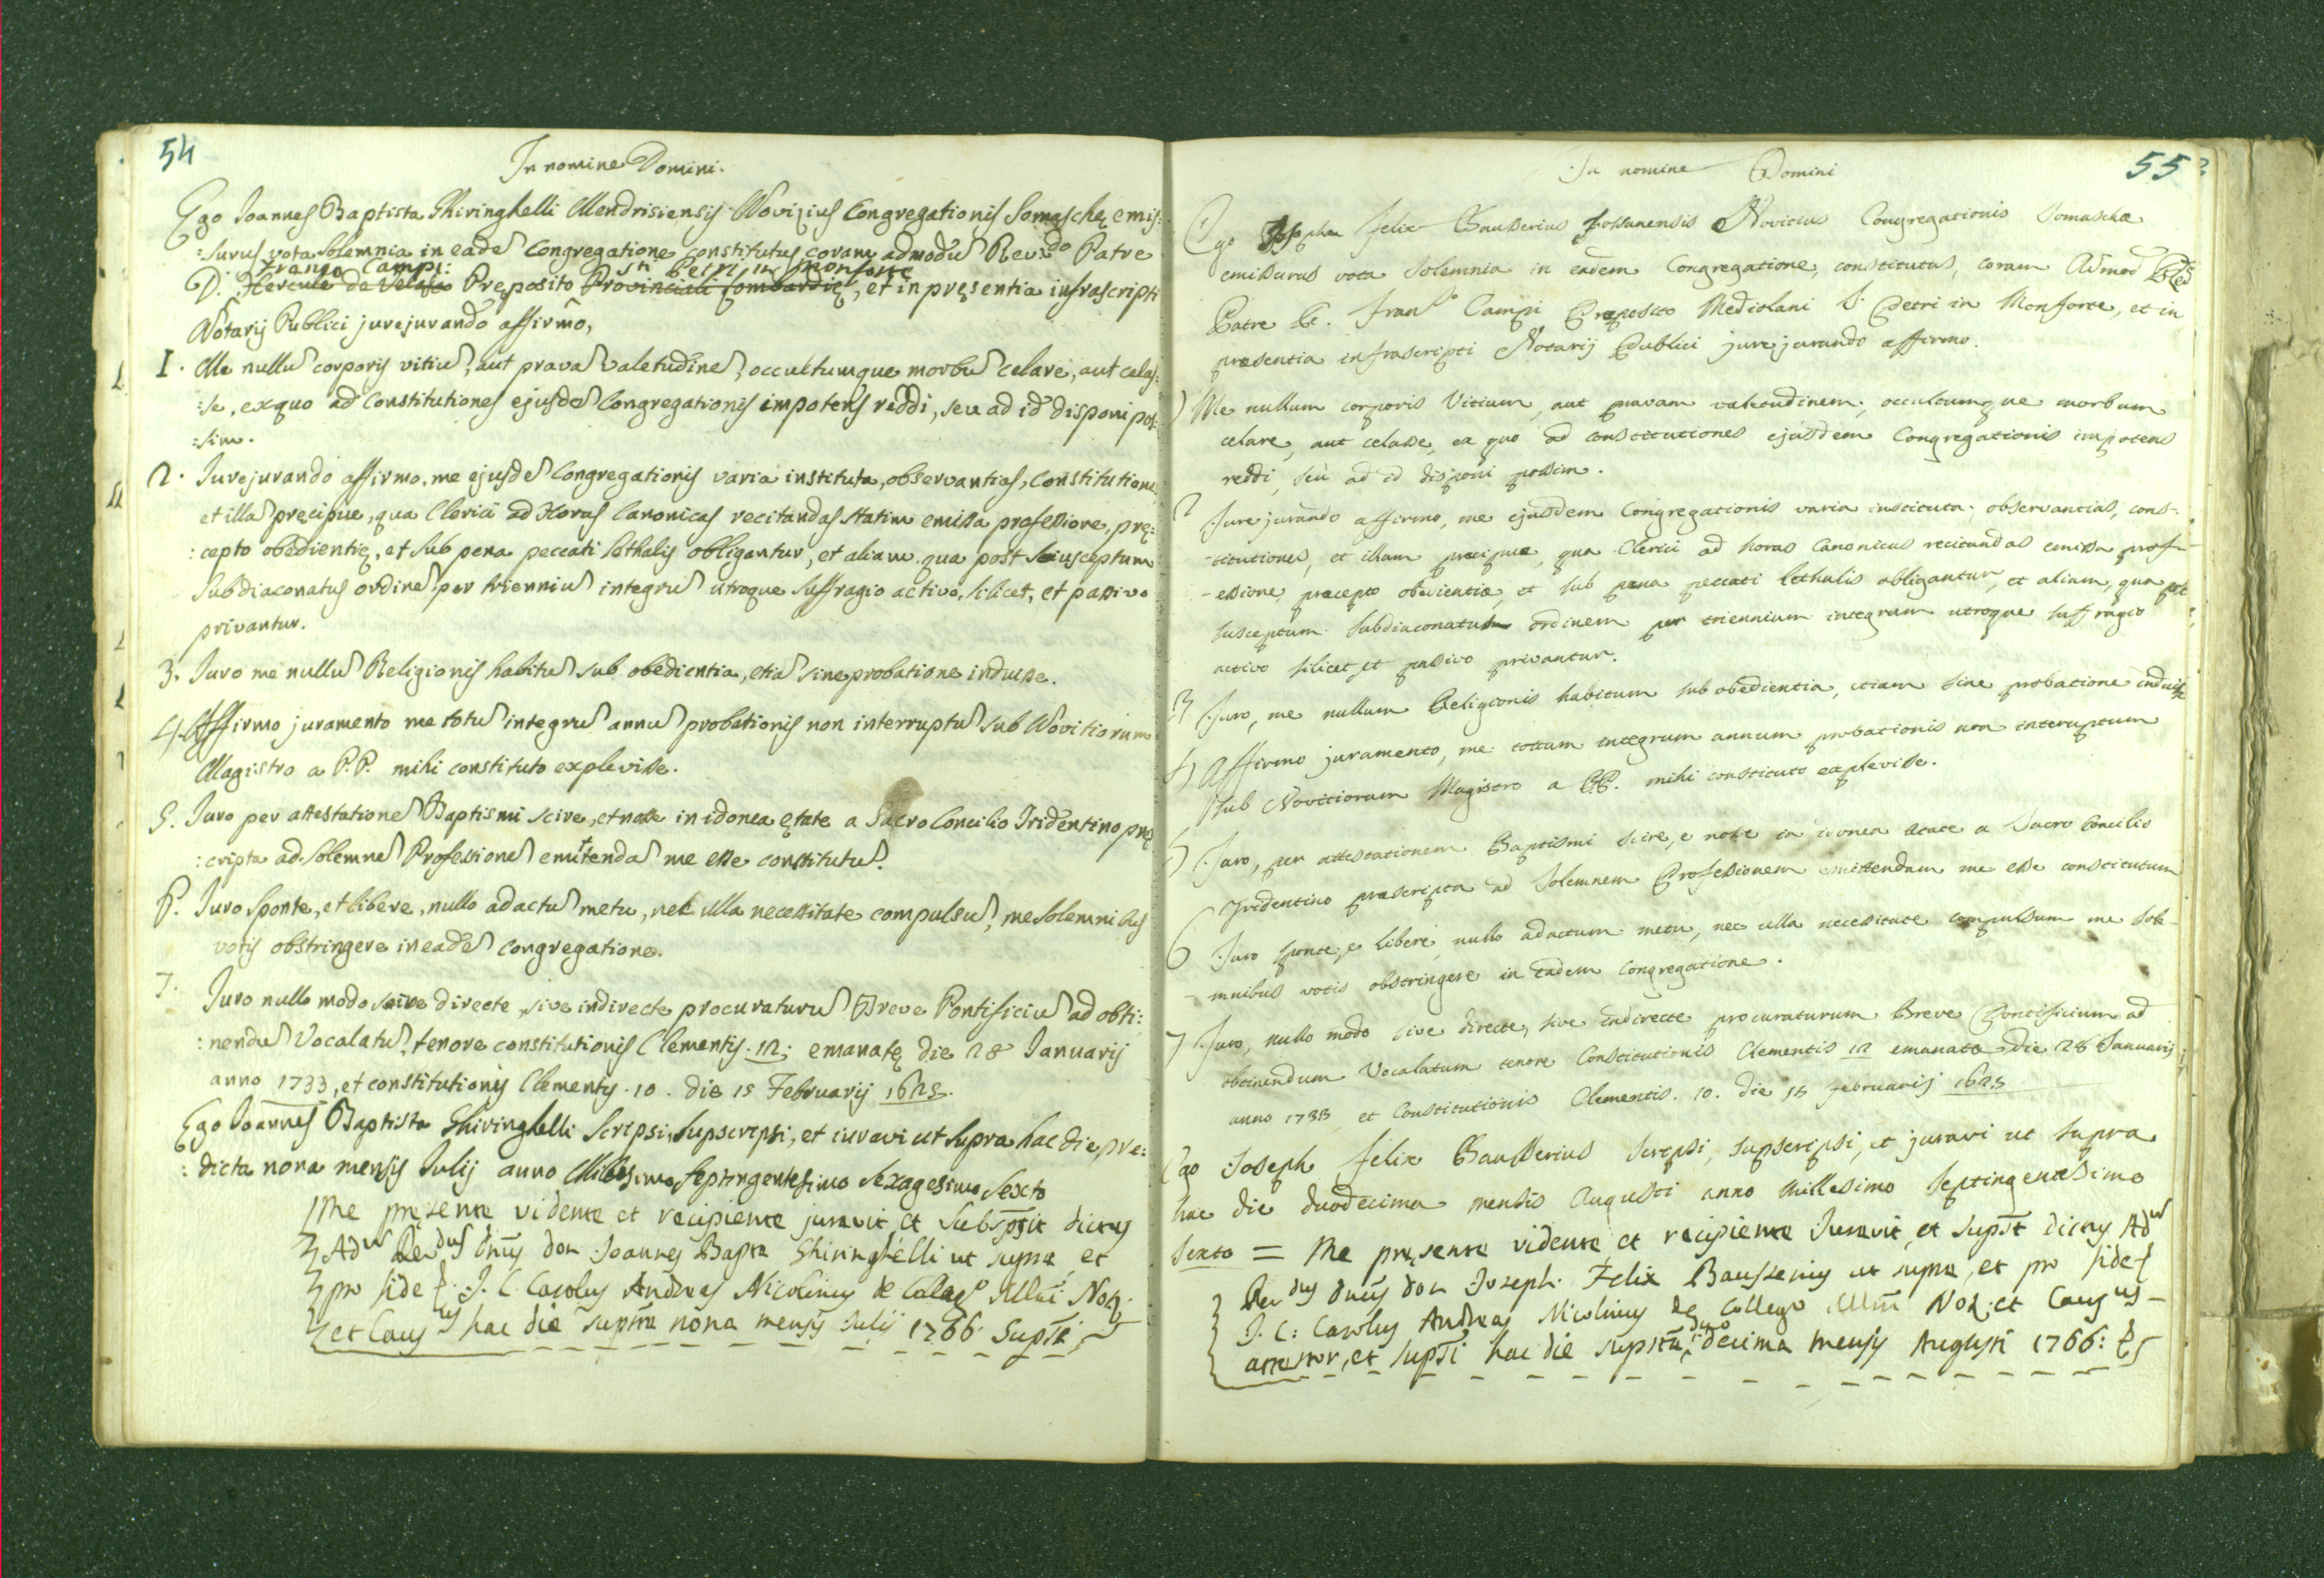 54
In nomine Domini.
Ego Joannes Baptista Ghiringhelli Mendrisiensis Novizius Congregationis Somaschę emis:
:surus vota solemnia in eade Congregatione constitutus coram admodu Revdo Patre
Franco Campi: Sti Petri in Monforte
D. Hercule de Velasco Pręposito Provinciali Lombardię, et in pręsentia infrascripti
Notarij Publici jurejurando affirmo,
I. Me nullu corporis vitiu, aut prava valetudine, occultumque morbu celare, aut celas:
:se, ex quo ad Constitutiones ejusde Congregationis impotens reddi, seu ad id disponi pos:
:sim.
2. Jurejurando affirmo, me ejusde Congregationis varia instituta, observantias, Constitutiones,
et illa pręcipue, qua Clerici ad Horas Canonicas recitandas statim emissa professione, prę:
:cepto obedientię, et sub pena peccati lethalis obligantur, et aliam, qua post susceptum
Subdiaconatus ordine per trienniu integru utroque suffragio activo, silicet, et passivo
privantur.
3. Juro me nullu Religionis habitu sub obedientia, etia sine probatione induisse.
4. Affirmo juramento me totu integru annu probationis non interruptu sub Novitiorum
Magistro a P.P. mihi constituto explevisse.
5. Juro per attestatione Baptismi scire, et nosse in idonea ętate a Sacro Concilio Tridentino prę
:cripta ad solemne Professione emittenda me esse constitutu.
6. Juro sponte, et libere, nullo adactu metu, nec ulla necessitate compulsu, me solemnibus
votis obstringere in eade Congregatione.
7. Juro nullo modo sive directe, sive indirecte procuraturu Breve Pontificiu ad obti:
:nendu Vocalatu, tenore constitutionis Clementis. 12; emanatę die 28 Januarij
anno 1733, et constitutionis Clementis. 10. die 15 Februarij 1625.
Ego Joannes Baptista Ghiringhelli scripsi, supscripsi, et iuravi ut supra hac die prę:
:dicta nona mensis Julij anno Millesimo septingentesimo sexagesimo sexto
Me pręsente vidente et recipiente juravit et subspsit dictus
Adm Revdus Dnus don Joannes Bapta Ghiringhelli ut supra, et
pro fide J. C. Carolus Andreas Nicolinus de Collego Mlni Not.
et Causus hac die supra nona mensis Julij 1766. Supsti
55
In nomine Domini
Ego Joseph Felix Bausserius Fossanensis Novicius Congregationis Somascha
emissurus vota solemnia in eadem Congregatione, constitutus, coram Admod Rdo
Patre D. Franco Campi Preposito Mediolani S. Petri in Monforte, et in
præsentia infrascripti Notarij Publici jurejurando affirmo.
1) Me nullum corporis vitium, aut pravam valetudinem, occultumque morbum
celare, aut celasse, ex quo ad constitutiones ejusdem Congregationis impotens
reddi, seu ad id disponi possim.
2 Jurejurando affirmo, me ejusdem Congregationis varia instituta, observantias, cons-
-titutiones, et illam precipue, qua Clerici ad horas Canonicas recitandas emissa prof-
-essione, præcepto obedientiæ, et sub pæna peccati lethalis obligantur, et aliam, qua post
susceptum Subdiaconatus ordinem per triennium integrum utroque suffragio
activo silicet, et passivo privantur.
3) Juro, me nullum Religionis habitum sub obedientia, etiam sine probatione induisse
4) Affirmo juramento, me tottum integrum annum probationis non interuptum
sub Novitiorum Magistro a P.P. mihi constituto explevisse.
5) Juro, per attestationem Baptismi scire, e nosse in idonea ætate a Sacro Concilio
Tridentino præscripta ad Solemnem Professionem emittendam me esse constitutum
6 Juro sponte, e libere, nullo adactum metu, nec ulla necessitate compulsum me sole-
-mnibus votis obstringere in eadem Congregatione.
7 Juro, nullo modo sive directe, sive indirecte procuraturum Breve Pontificium ad
obtinendum Vocalatum tenore Constitutionis Clementis 12 emanatæ die 28 Januarij
anno 1733 et Constitutionis Clementis. 10. die 15 Februarij 1625
Ego Joseph Felix Bausserius scripsi, supscripsi, et juravi ut supra
hac die duodecima mensis Augusti anno millesimo septingentesimo
sexto = Me pręsente vidente et recipiente Juravit, et supst dictus Adm
Revdus dnus don Joseph Felix Bausserius ut supra, et pro fide
J. C: Carolus Andreas Nicolinus de Collego Mlni Not. et Causus
attestor, et supsti hac die suprta, duodecima mensis Augusti 1766: